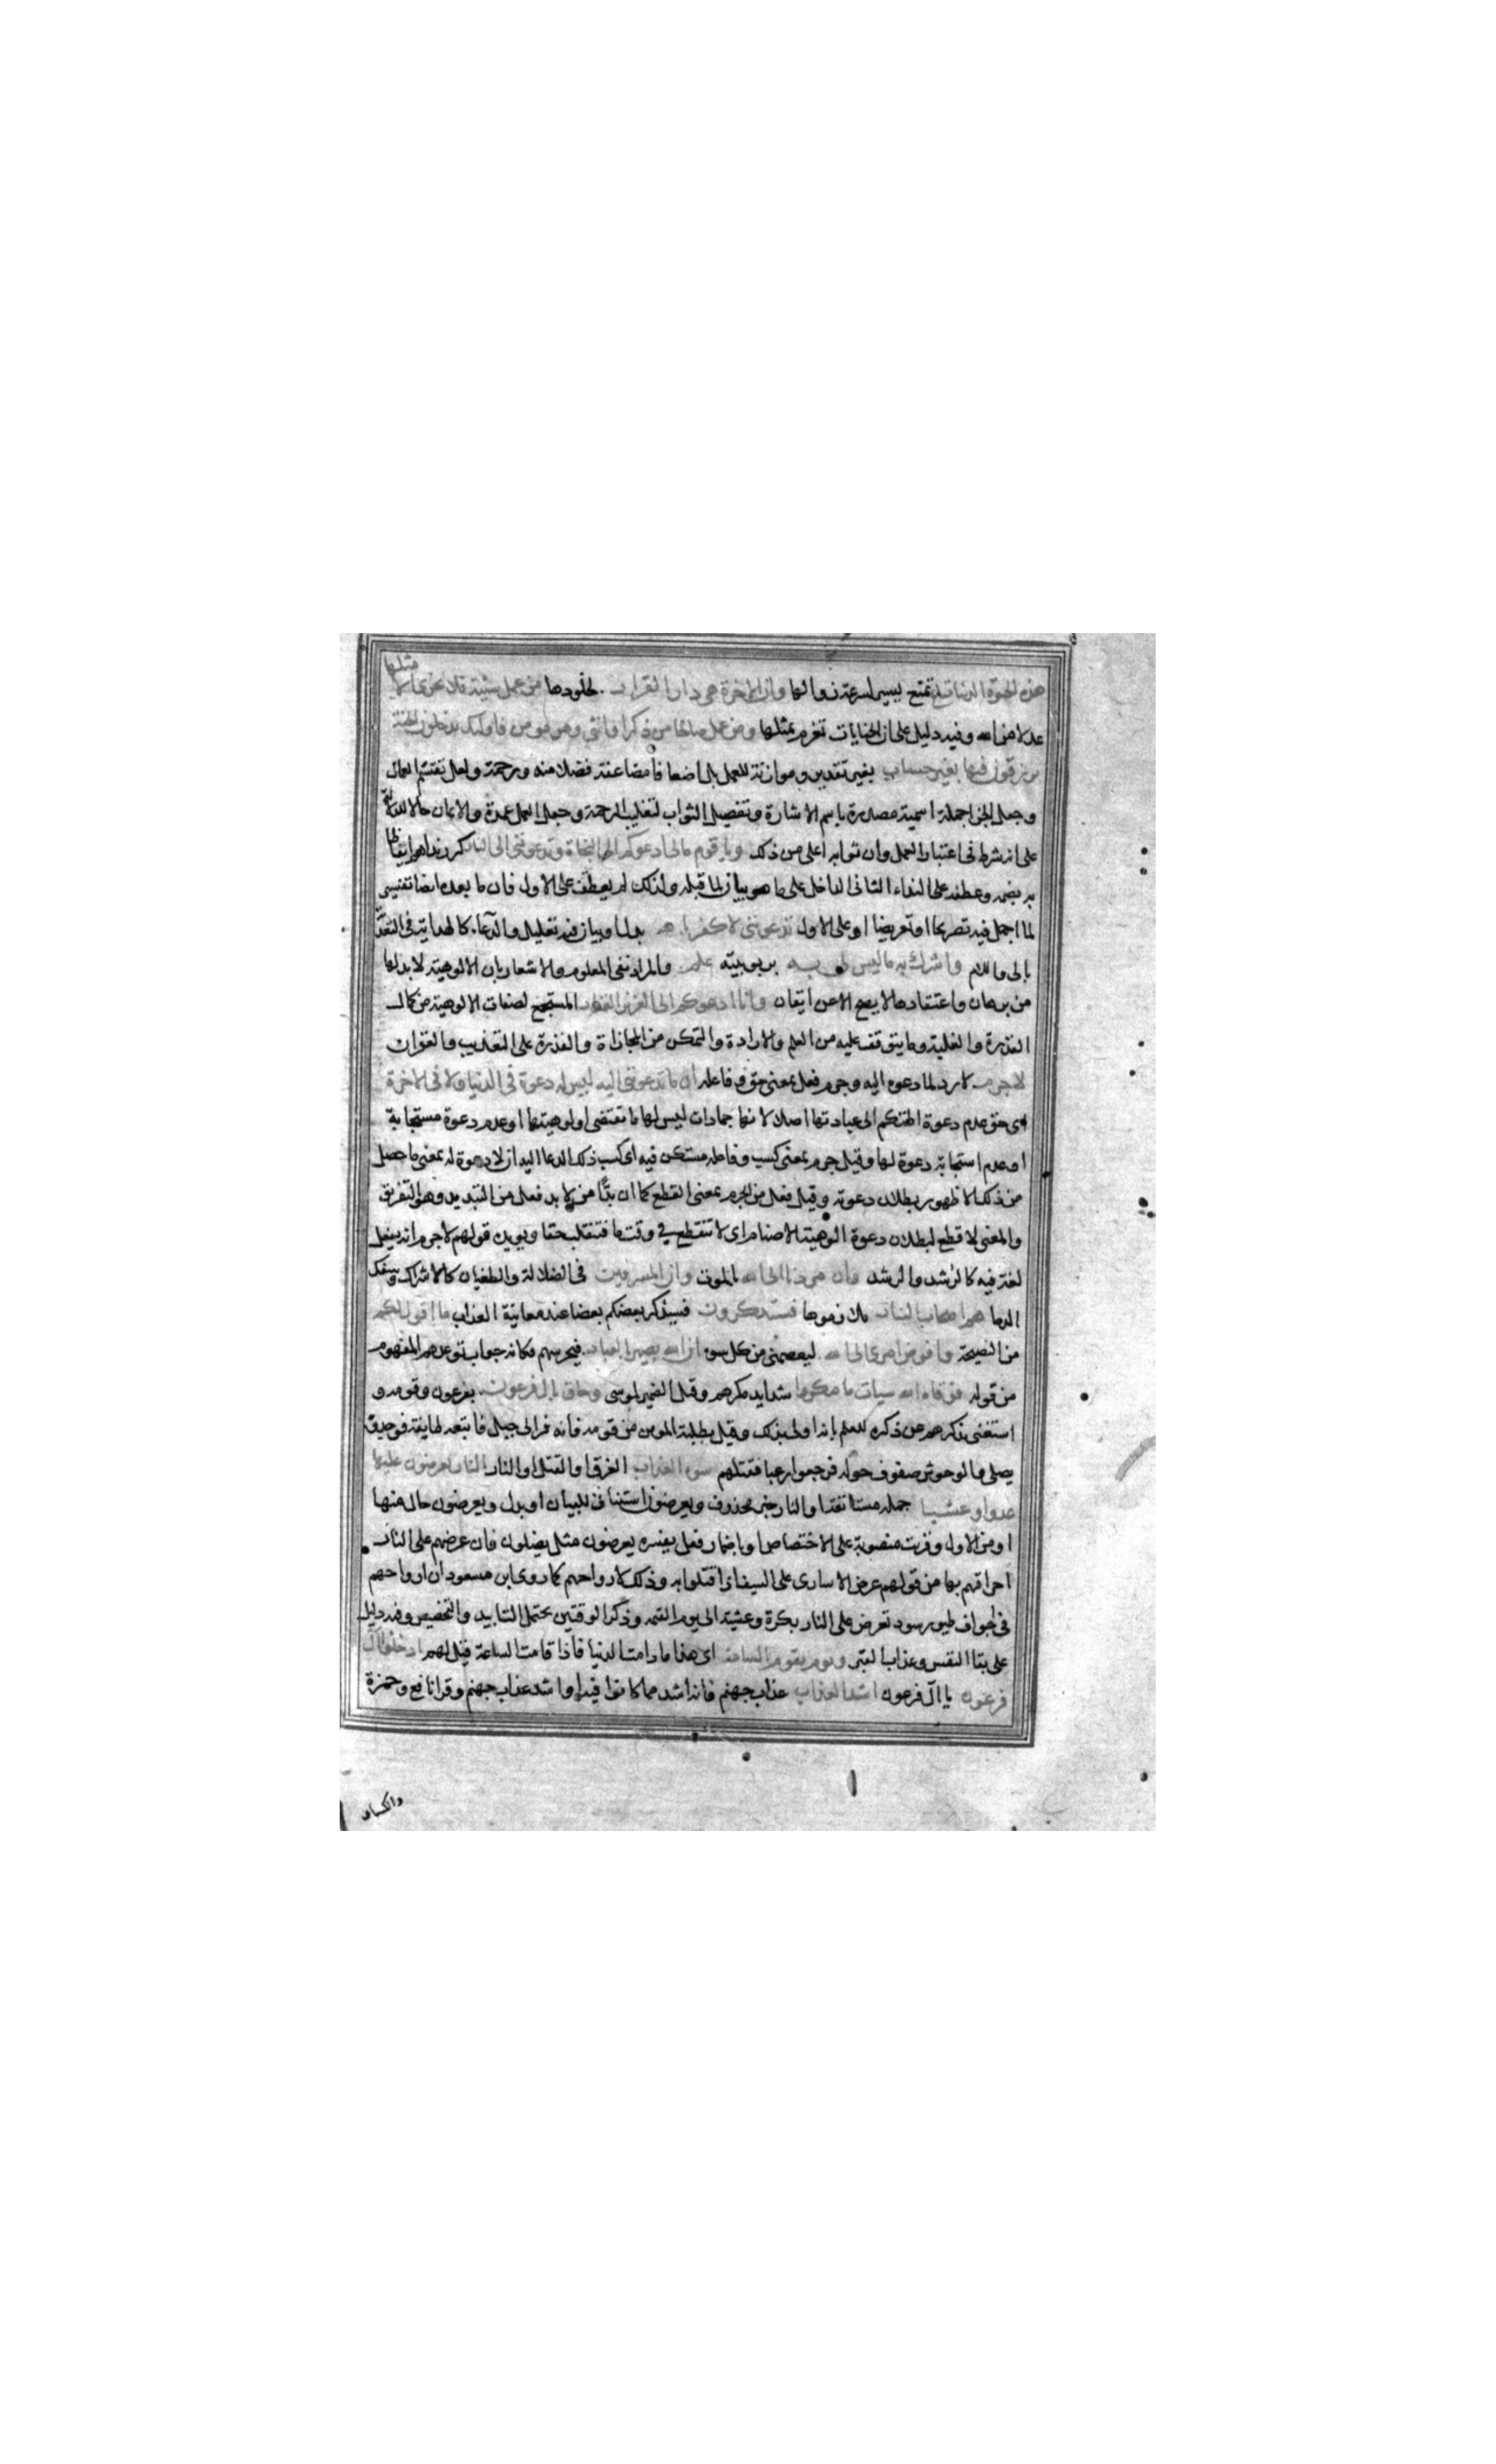 هذه الحيوة الدنيا متاع تمتع يسير لسرعة زوالها وان الاخرة هي دار القرار لخلودها من عمل سيئة فلا يجزى الا مثلها
عدلا من الله وفيه دليل على ان الجنايات تغرم بمثلها ومن عمل صالحا من ذكر او انثى وهو مومن فاولئك يدخلون الجنة
يرزقون فيها بغير حساب بغير تقدير وموازنة للعمل بل اضعافا مضاعفة فضلا منه ورحمة ولعل تقسيم العمال
وجعل الجزا جملة اسمية مصدرة باسم الاشارة وتفضيل الثواب لتغليب الرحمة وجعل العمل عمدة والايمان حالا للدلالة
على انه شرط في اعتبار العمل وان ثوابه اعلى من ذلك ويا قوم مالى ادعوكم الى النجاة وتدعونني الى النار كرر نداهم ايقاظا
وعطفه على النداء الثاني الداخل على ما هو بيان لما قبله ولذلك لم يعطف على الاول فان ما بعده ايضا تفسير
لما اجمل فيه تصريحا او تعريضا او على الاول تدعونني لاكفر بالله بدل او بيان فيه تعليل والدعاء كالهداية في التعدية
بالى واللام واشرك به ما ليس لى به بربوبيته علم والمراد نفى المعلوم والاشعار بان الالوهية لا بد لها
من برهان واعتقادها لا يصح الا عن ايقان وانا ادعوكم الى العزيز الغفار المستجمع لصفات الالوهية من كمال
القدرة والغلبة وما يتوقف عليه من العلم والارادة والتمكن من المجازاة والقدرة على التعذيب والغفران
لا جرم لا رد لما دعوه اليه وجرم فعل بمعنى حق وفاعله ان ما تدعونني اليه ليس له دعوة في الدنيا ولا في الاخرة
اى حق عدم دعوة الهتكم الى عبادتها اصلا لانها جمادات ليس لها ما تقتضى اولوهيتها او عدم دعوة مستجابة
او عدم استجابة دعوة لها وقيل جرم بمعنى كسب وفاعله مستكن فيه اى كسب ذلك الدعا اليه ان لا دعوة له بمعنى ما حصل
من ذلك الا ظهور بطلان دعوته وقيل فعل من الجرم بمعنى القطع كما ان بدا من لا بد فعل من التبديد وهو التفريق
والمعنى لا قطع لبطلان دعوة الوهية الاصنام اى لا تنقطع في وقت ما فتنقلب حقا ويويده قولهم لا جرم انه يفعل
لغة فيه كالرشد والرشد وان مردنا الى الله بالموت وان المسرفين في الضلالة والطغيان كالاشراك وسفك
الدما هم اصحاب النار ملازموها فستذكرون فسيذكر بعضكم بعضا عند معاينة العذاب ما اقول لكم
من النصيحة وافوض امرى الى الله ليعصمنى من كل سوء ان الله بصير بالعباد فيحرسهم وكانه جواب توعدهم المفهوم
من قوله فوقاه الله سيات ما مكروا شدايد مكرهم وقيل الضمير لموسى وحاق بال فرعون بفرعون وقومه و
استغنى بذكرهم عن ذكره للعلم بانه اولى بذلك وقيل بطلبة المومن من قومه فانه فر الى جبل فاتبعه طايفة فوجدوه
يصلى والوحوش صفوف حوله فرجعوا رعبا فقتلهم سوء العذاب الغرق او القتل او النار النار يعرضون عليها
غدوا وعشيا جملة مستانفة او النار خبر محذوف ويعرضون استيناف للبيان او بدل ويعرضون حال منها
او من الاول وقريت منصوبة على الاختصاص او باضمار فعل يفسره يعرضون مثل يصلون فان عرضهم على النار
احراقهم بها من قولهم عرض الاسارى على السيف اذا قتلوا به وذلك لارواحهم كما روى ابن مسعود ان ارواحهم
في اجواف طيور سود تعرض على النار بكرة وعشية الى يوم القيمة وذكر الوقتين يحتمل التابيد والتخصيص وفيه دليل
على بقا النفس وعذاب القبر ويوم يقوم الساعة اى هذا ما دامت الدنيا فاذا قامت الساعة قيل لهم ادخلوا ال
فرعون يا ال فرعون اشد العذاب عذاب جهنم فانه اشد مما كانوا فيه او اشد عذاب جهنم وقرا نافع وحمزة
والكسائى